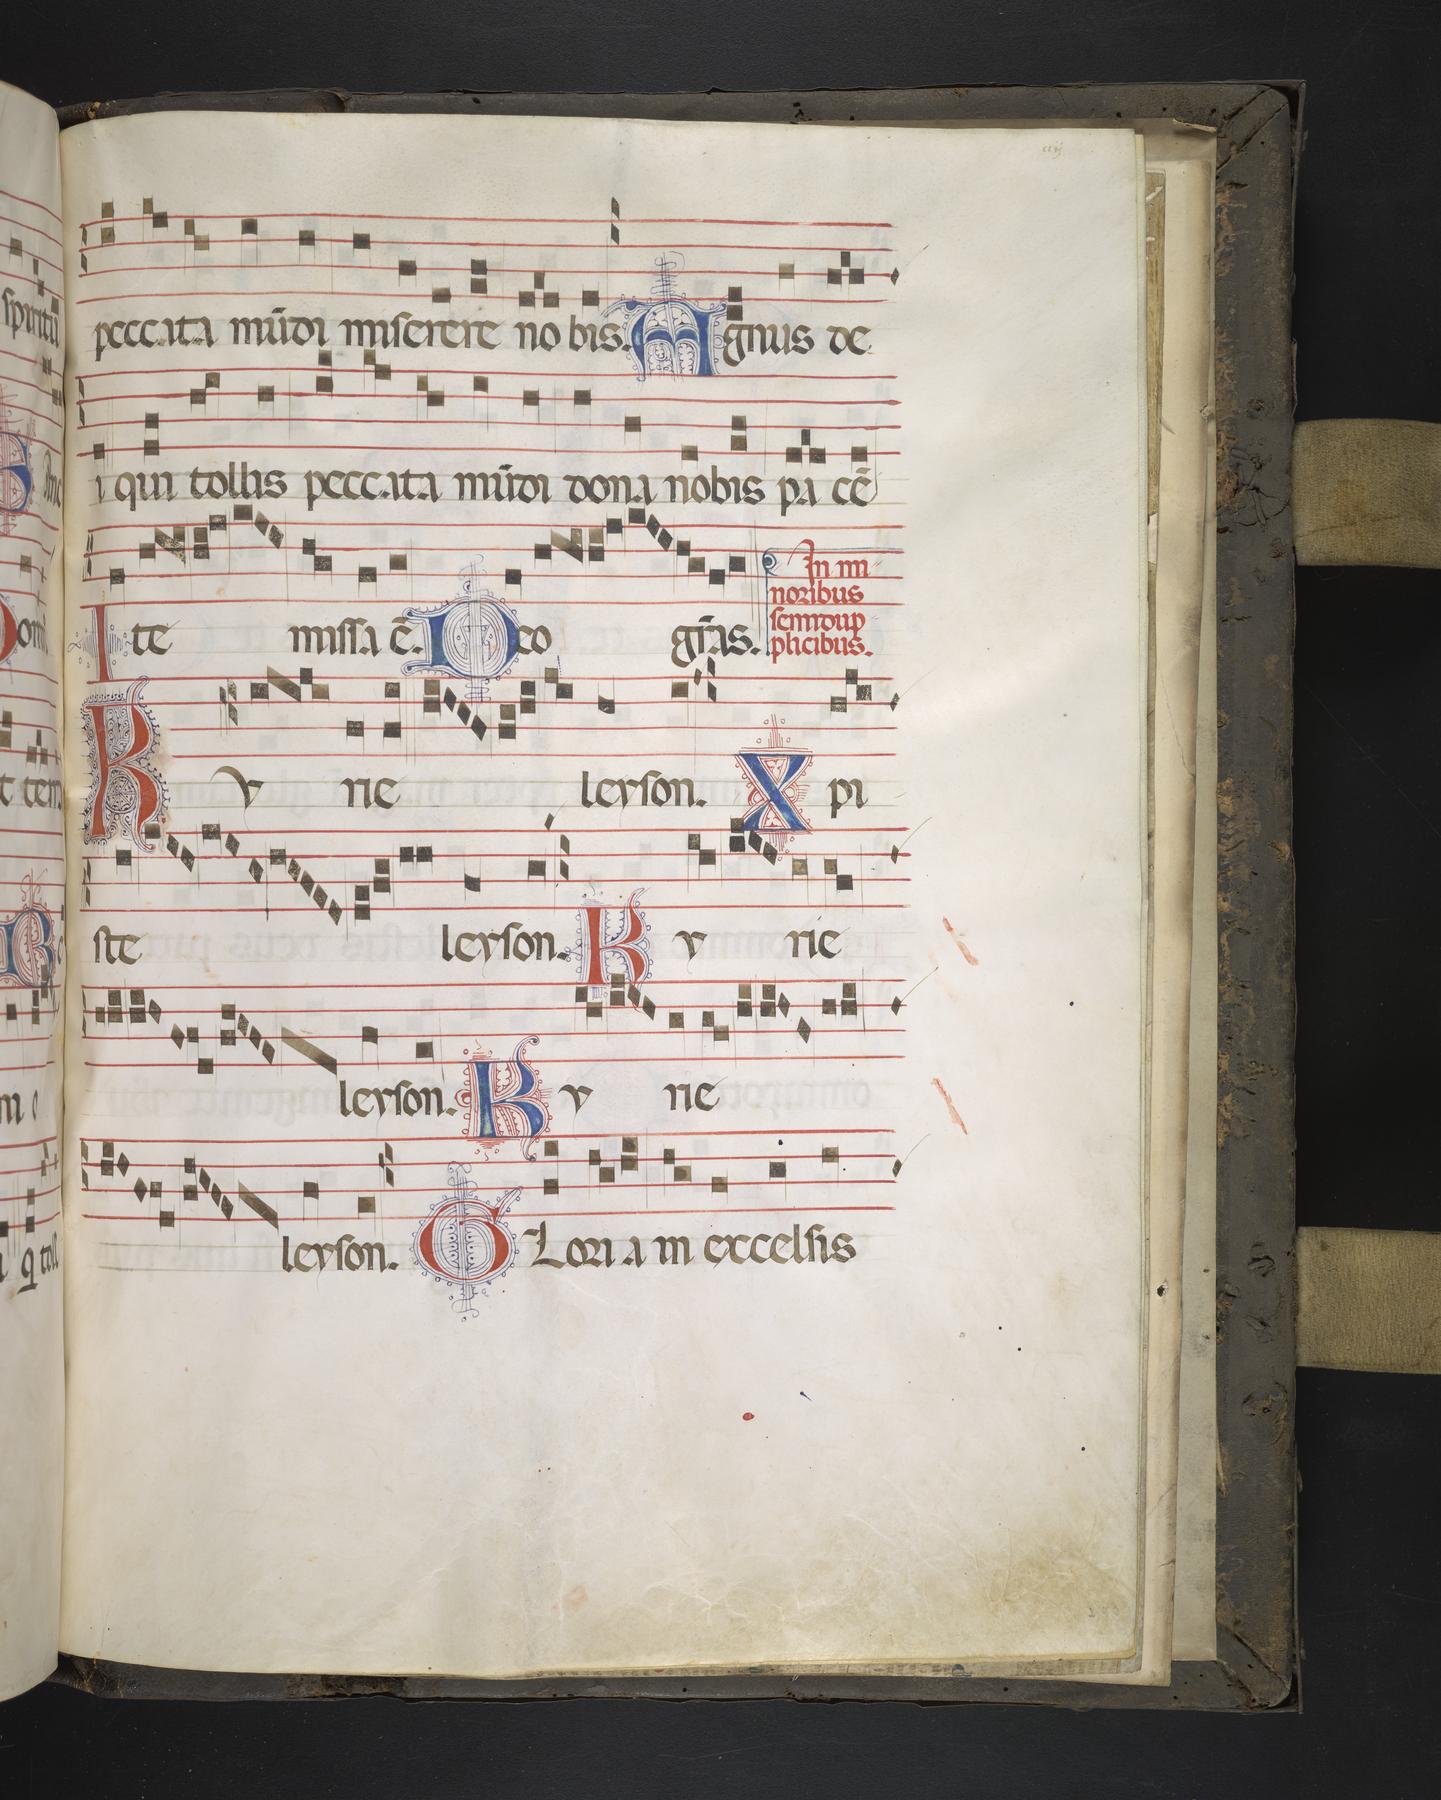 spiritū
peccata mūdi miserere no bis. Agnus de
i qui tollis peccata mūdi dona nobis pa cē
Ite missa ē. Deo grās.
In mi
noribus
semidup
plicibus.
Ky rie leyson. Xpi
ste leyson. Ky rie
leyson. Ky rie
leyson. Glori a in excelsis